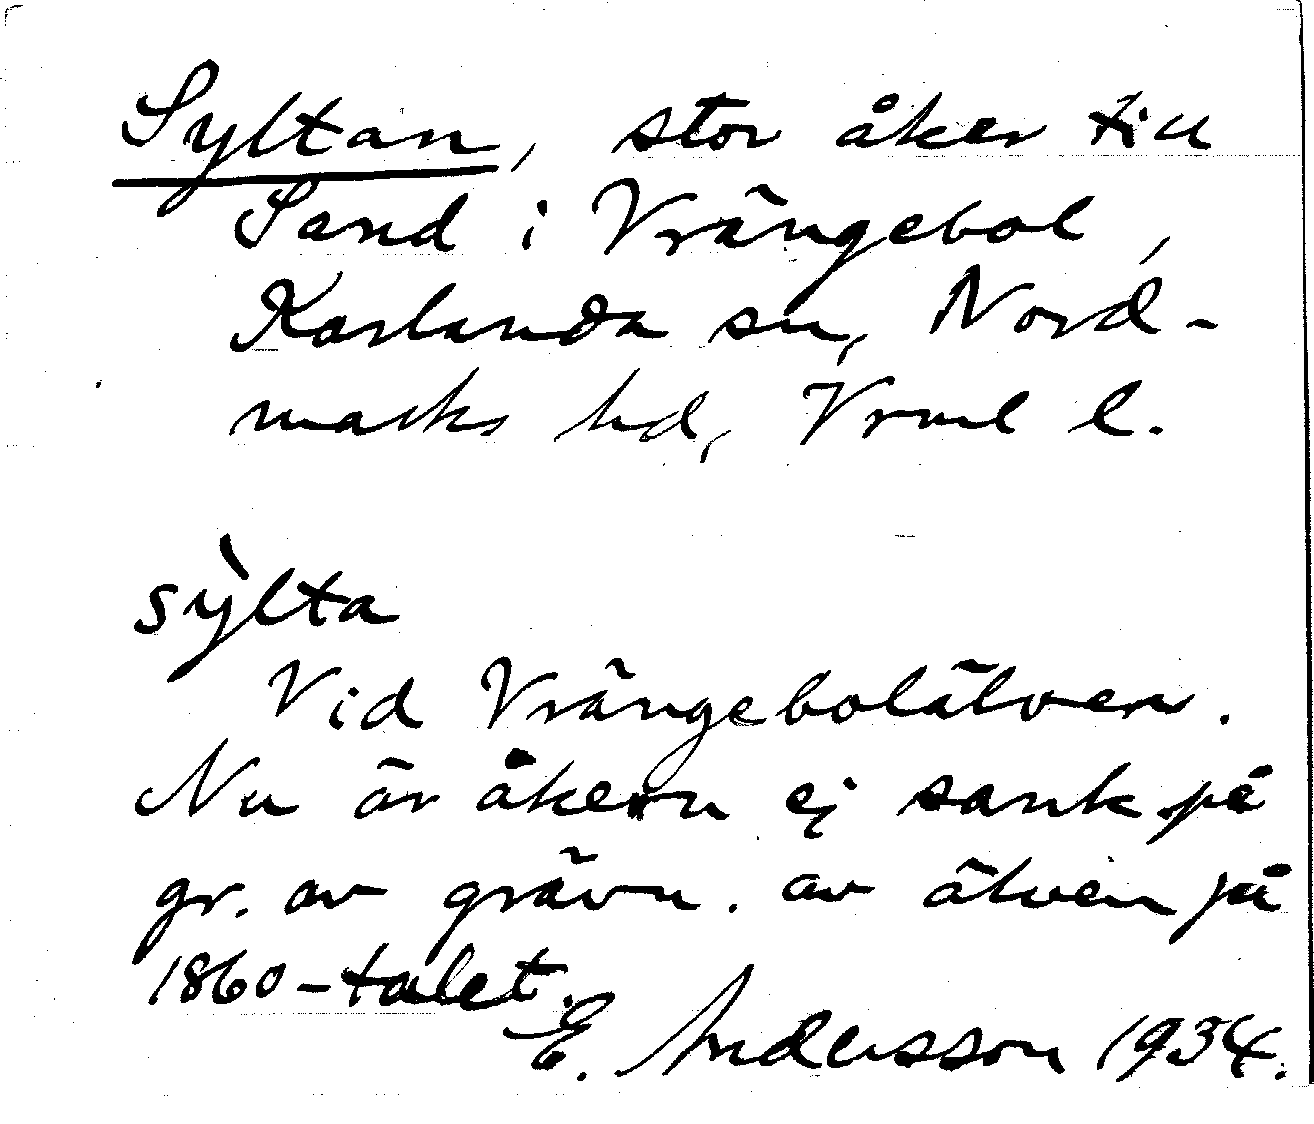 Syltan, stor åker till
Sand i Vrängebol,
Karlanda sn, Nord-
marks hd, Vrml l.
sỳlta
Vid Vrängebolälven.
Nu är åkern ej sank på
gr. av grävn. av älven på
1860-talet.
E. Andersson 1934.